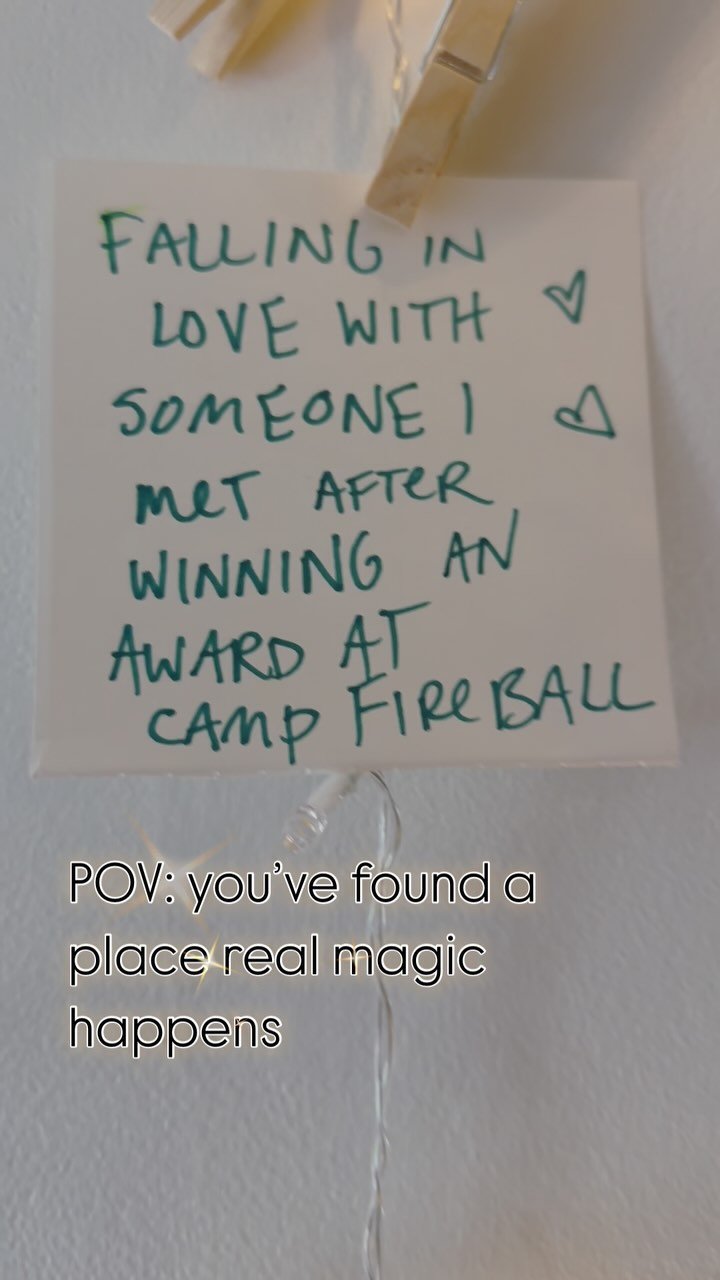 FALLING IN
LOVE WITH
SOMEONE I
MET AFTER
WINNING AN
AWARD AT
CAMP FIREBALL
POV: you've found a
place real magic
happens